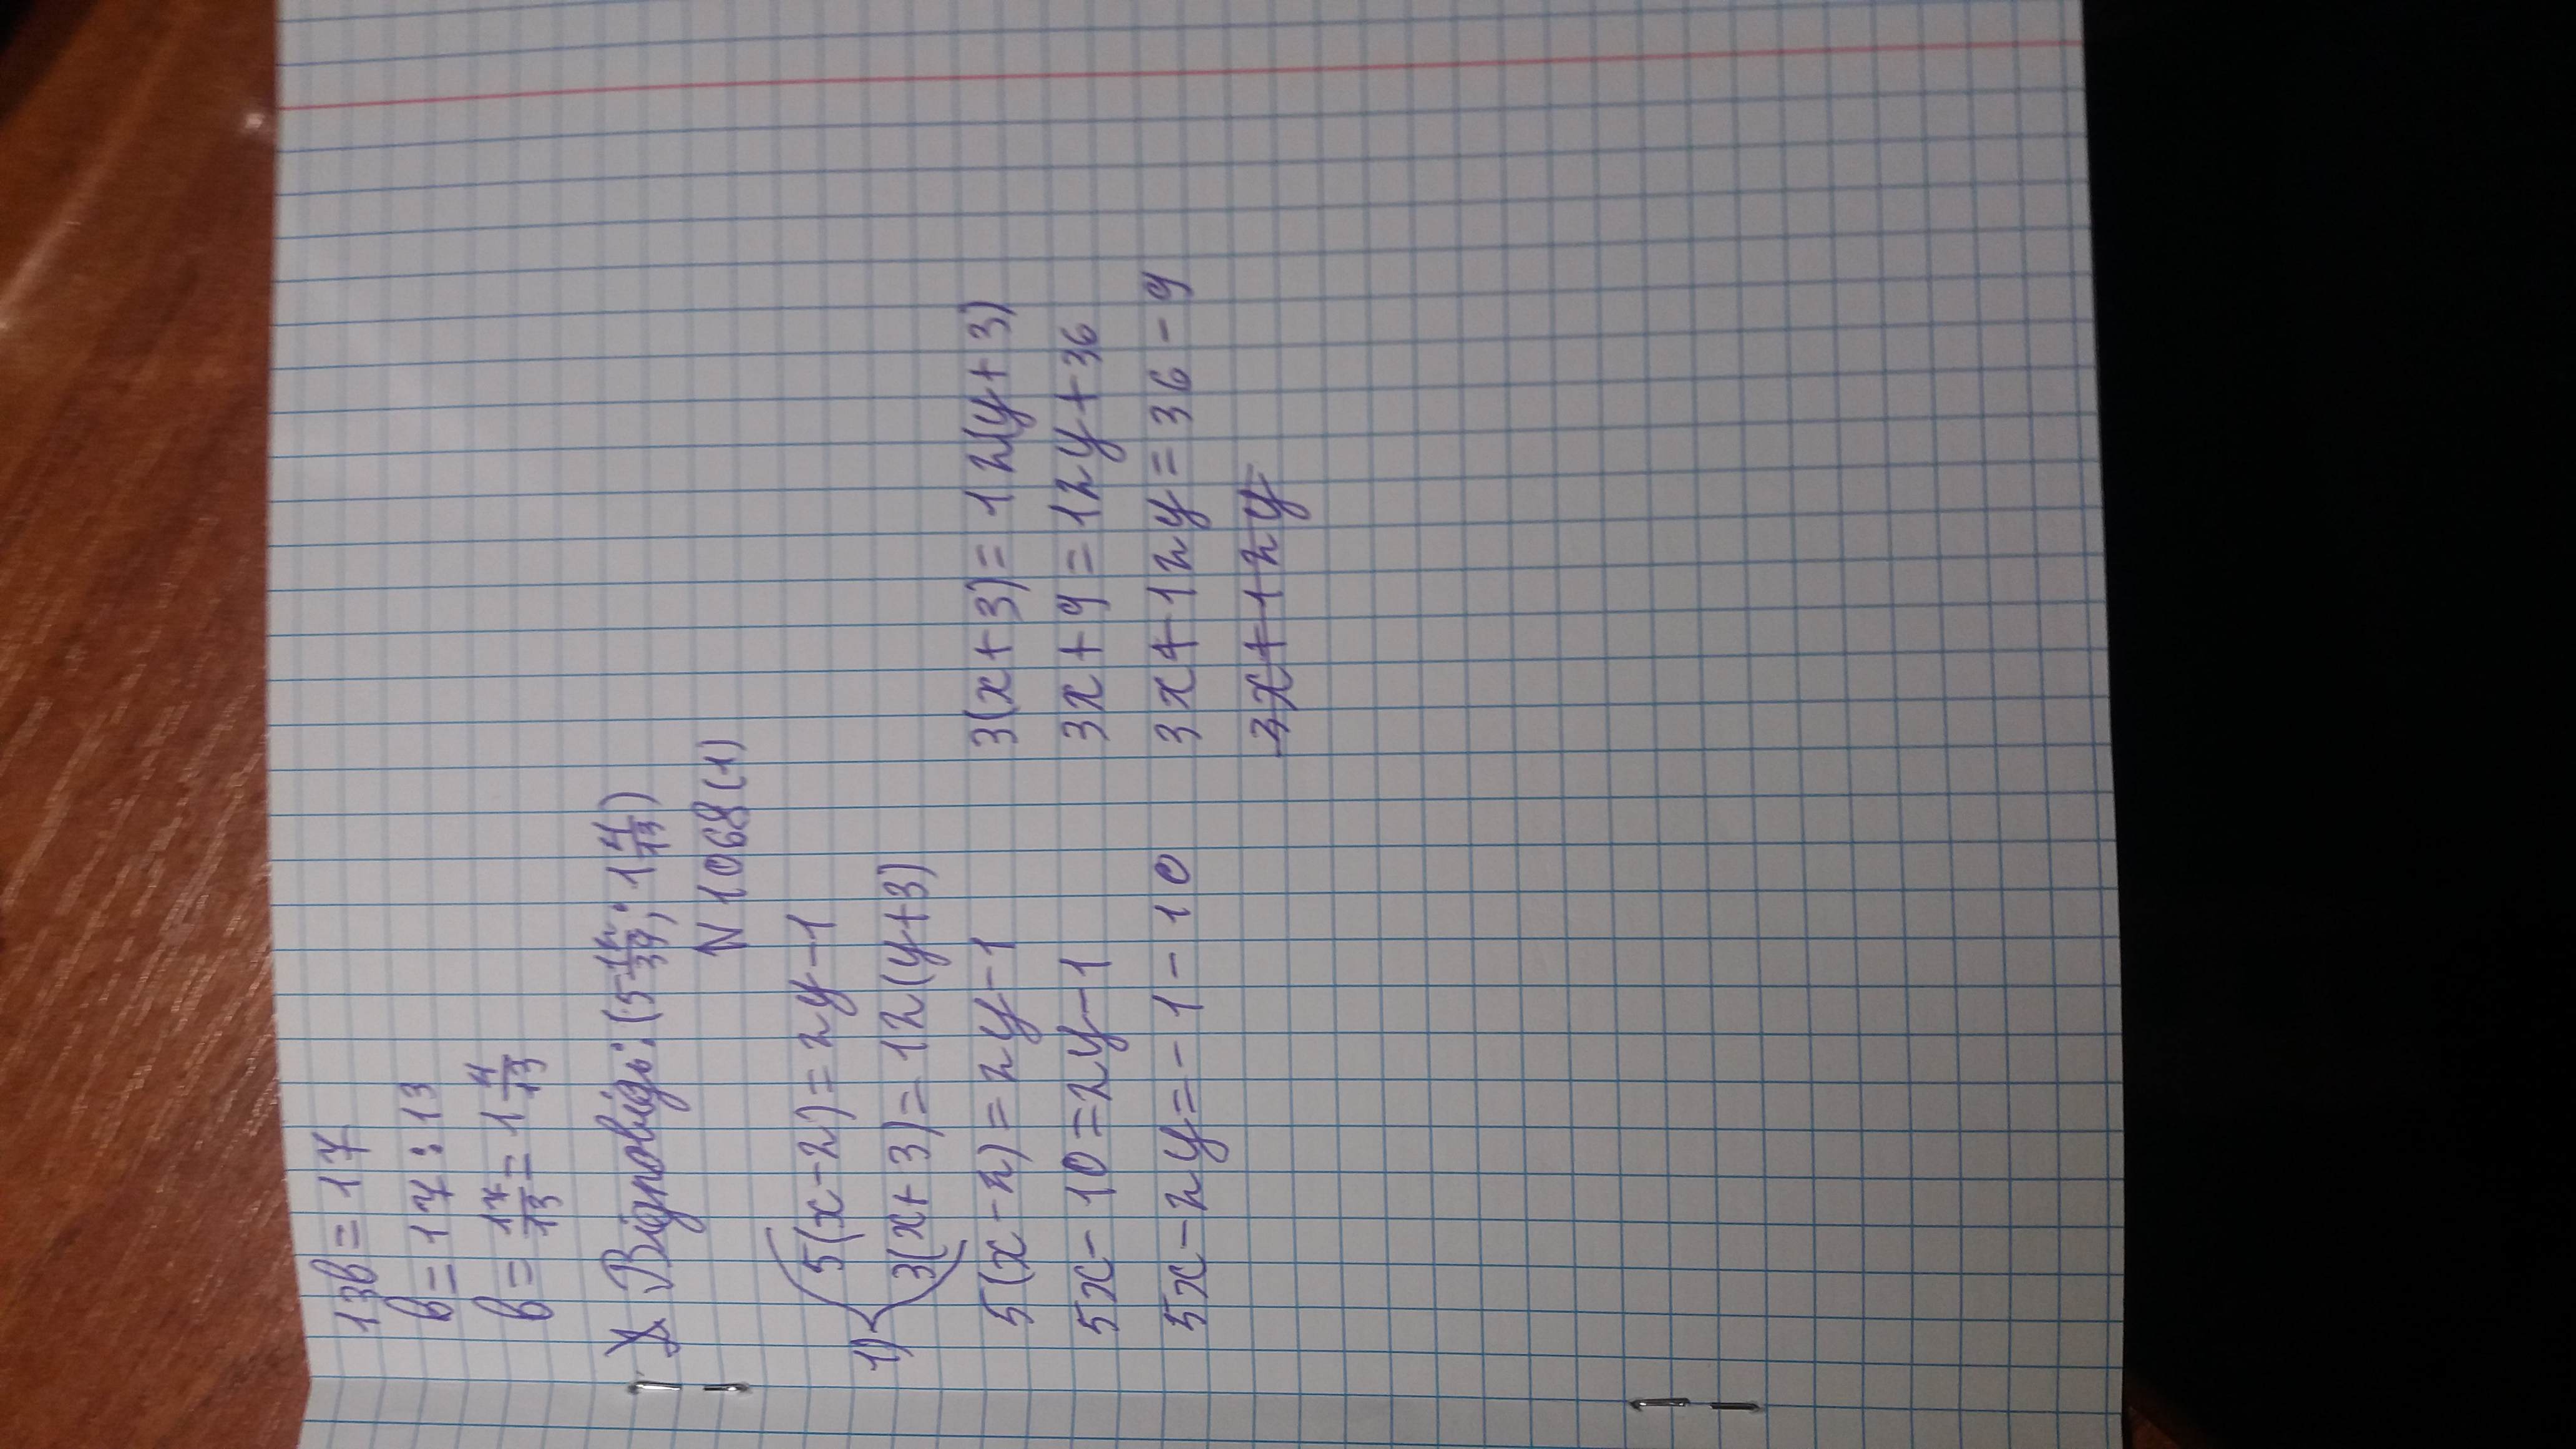 13b = 17
b = 17 : 13
b = 17/13 = 1 4/13
Відповідь: (5 12/39; 1 4/13)
N 1068(1)
1) { 5(x-2) = 2y-1
3(x+3) = 12(y+3)
5(x-2) = 2y-1 3(x+3) = 12(y+3)
5x-10 = 2y-1 3x+9 = 12y+36
5x-2y = -1-10 3x+12y = 36-9
3x+12y